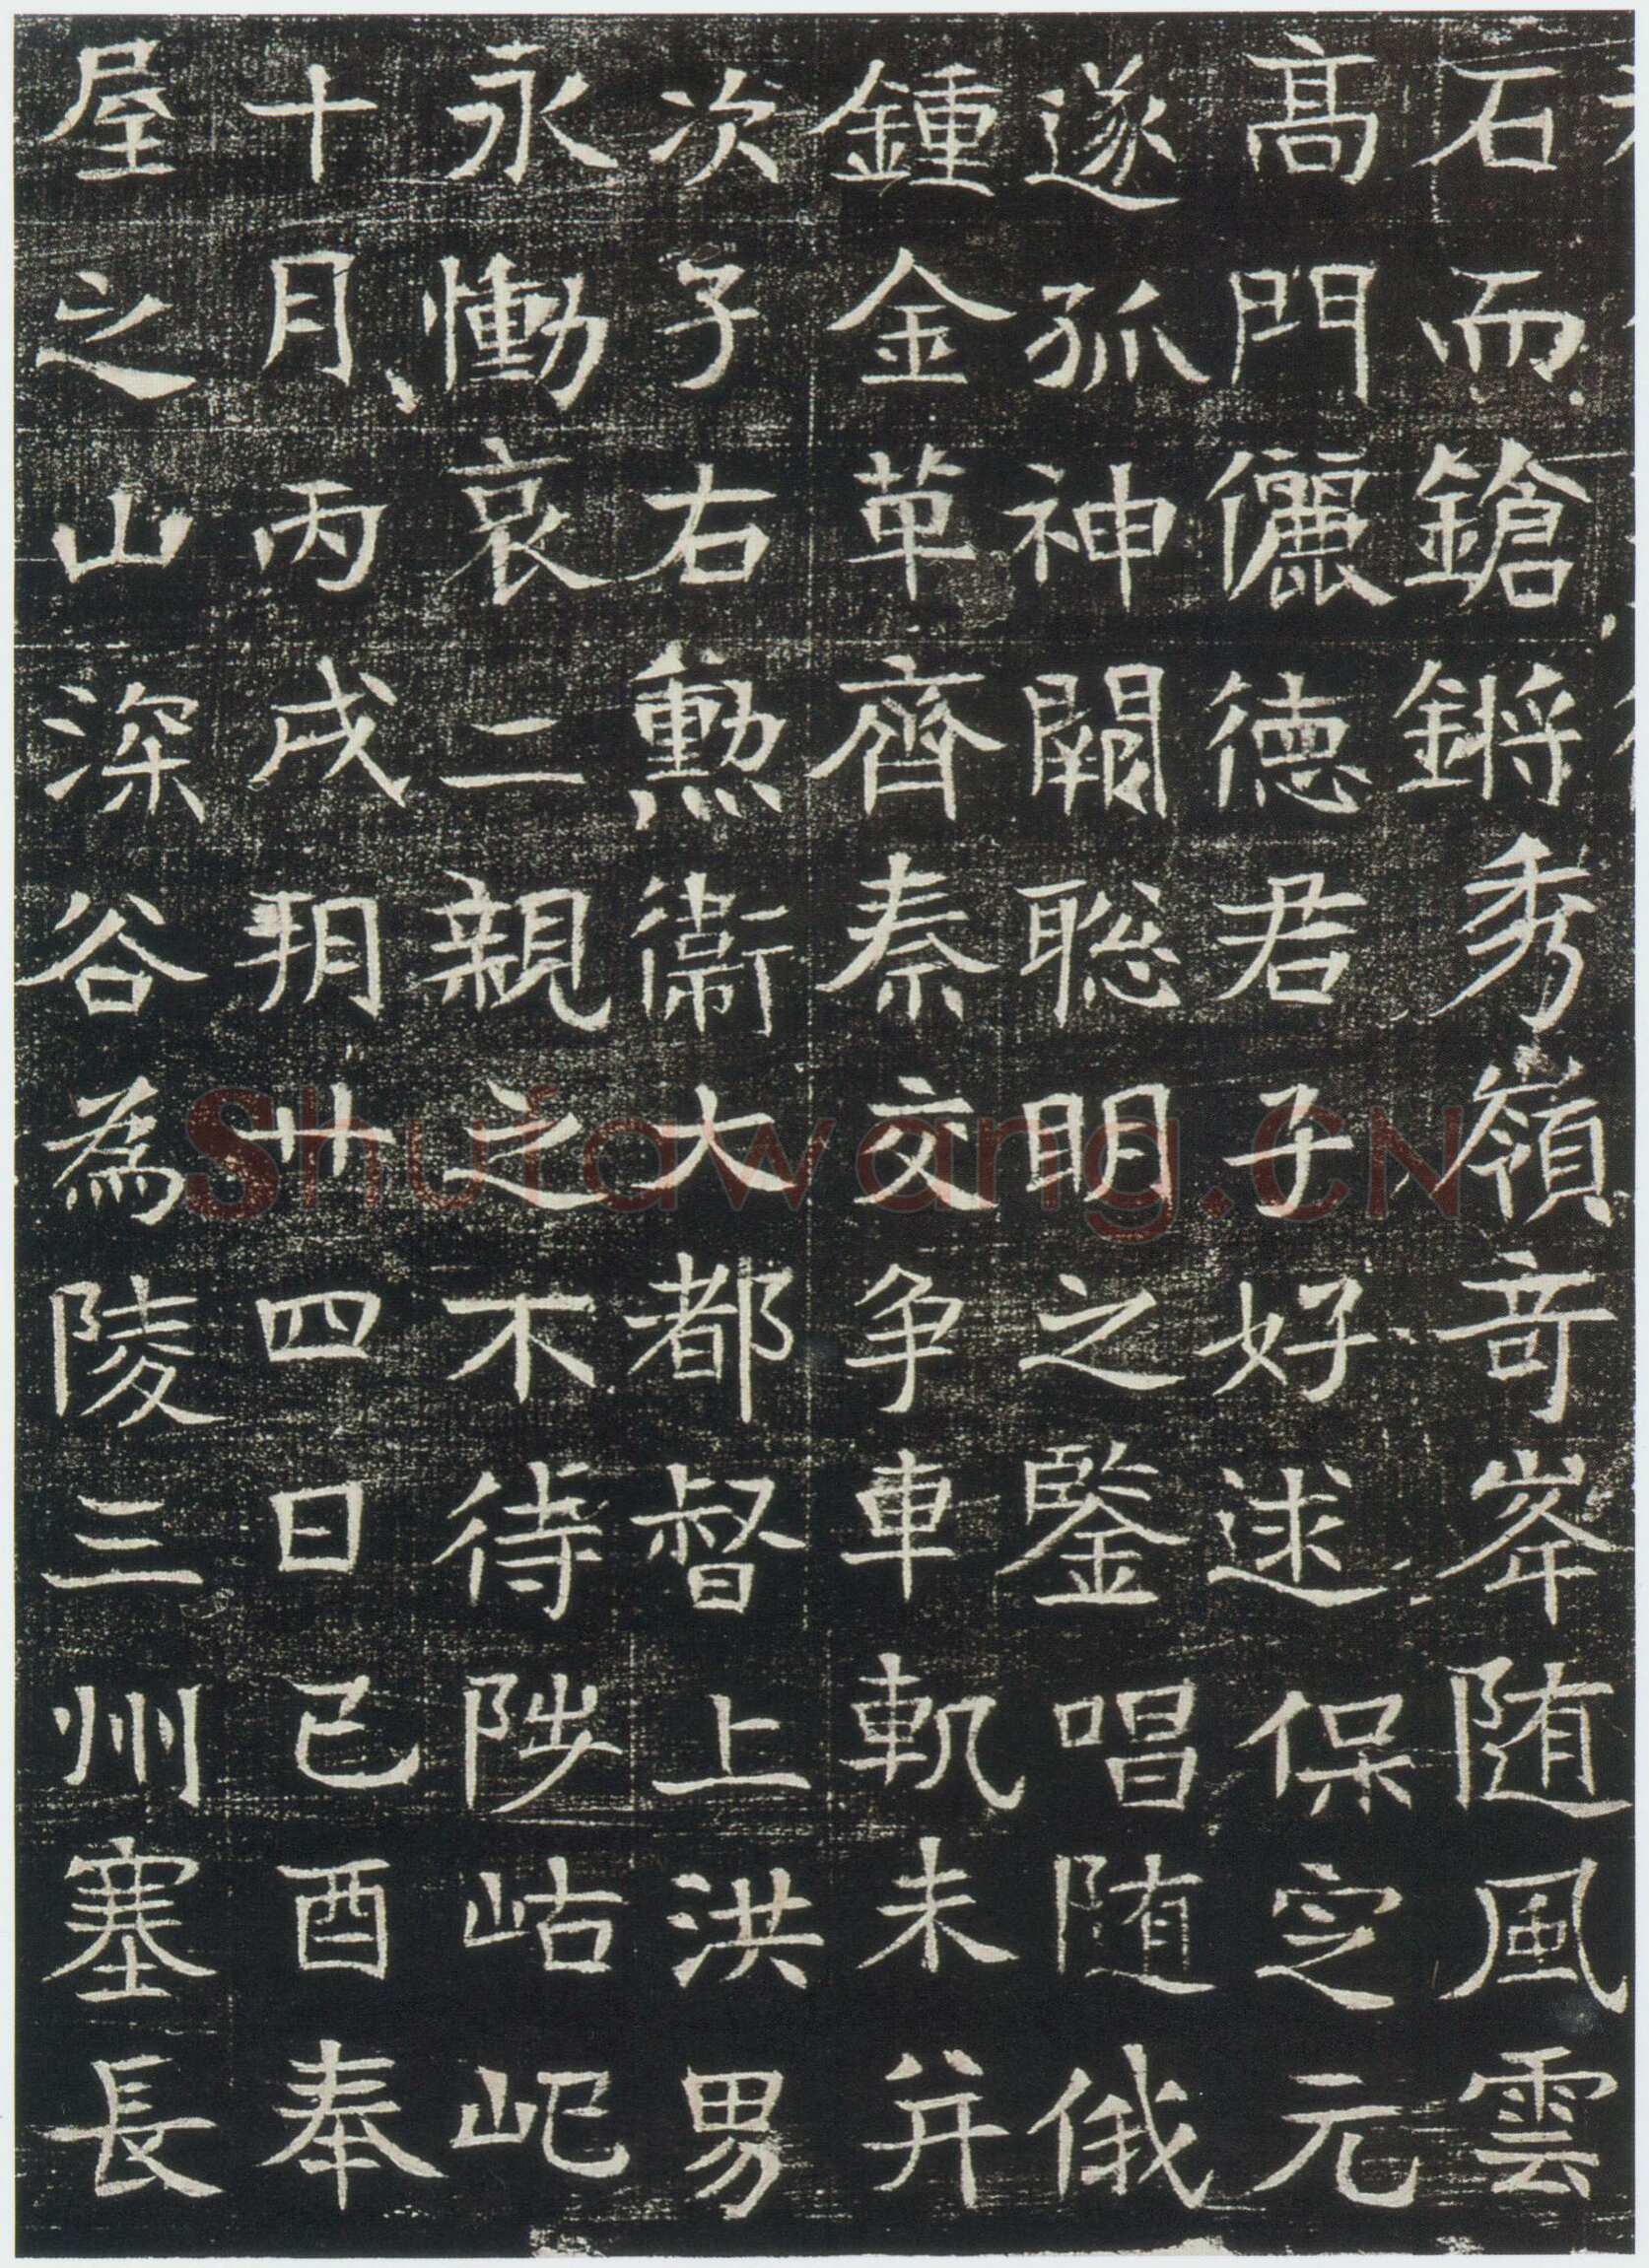 石而鎗鏘秀嶺奇峯随風雲
高門儷德君子好逑保定元
遂孤神闕聡明之鑒唱随俄
鍾金革齊秦交争車軌未并
次子右勲衛大都督上洪男
永慟哀二親之不待陟岵屺
十月丙戌朔廿四日己酉奉
屋之山深谷為陵三州塞長
Shufawang.CN